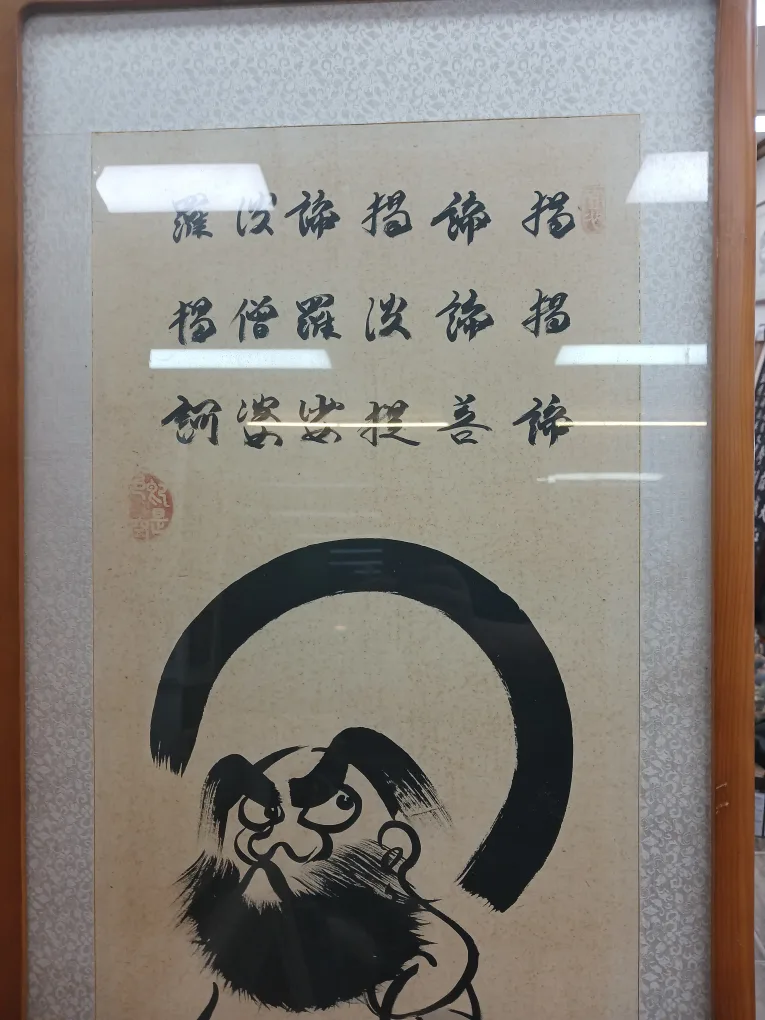 揭諦揭諦波羅
揭諦波羅僧揭
諦菩提娑婆訶